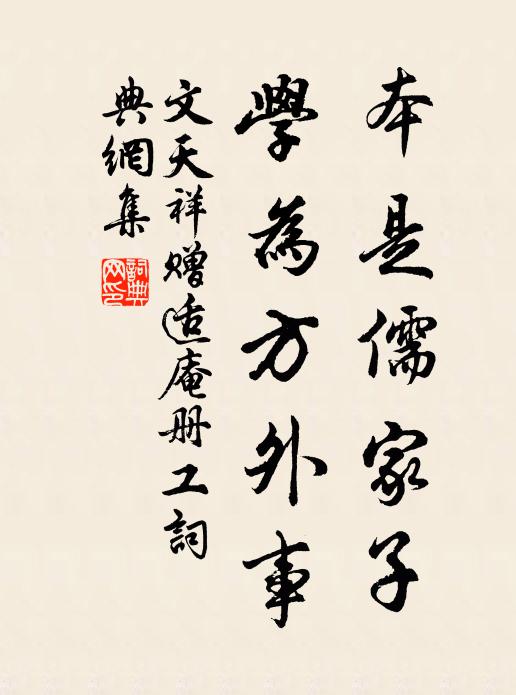 本是儒家子
學為方外事
文天祥赠适庵册工詞
典網集
詞典
网印